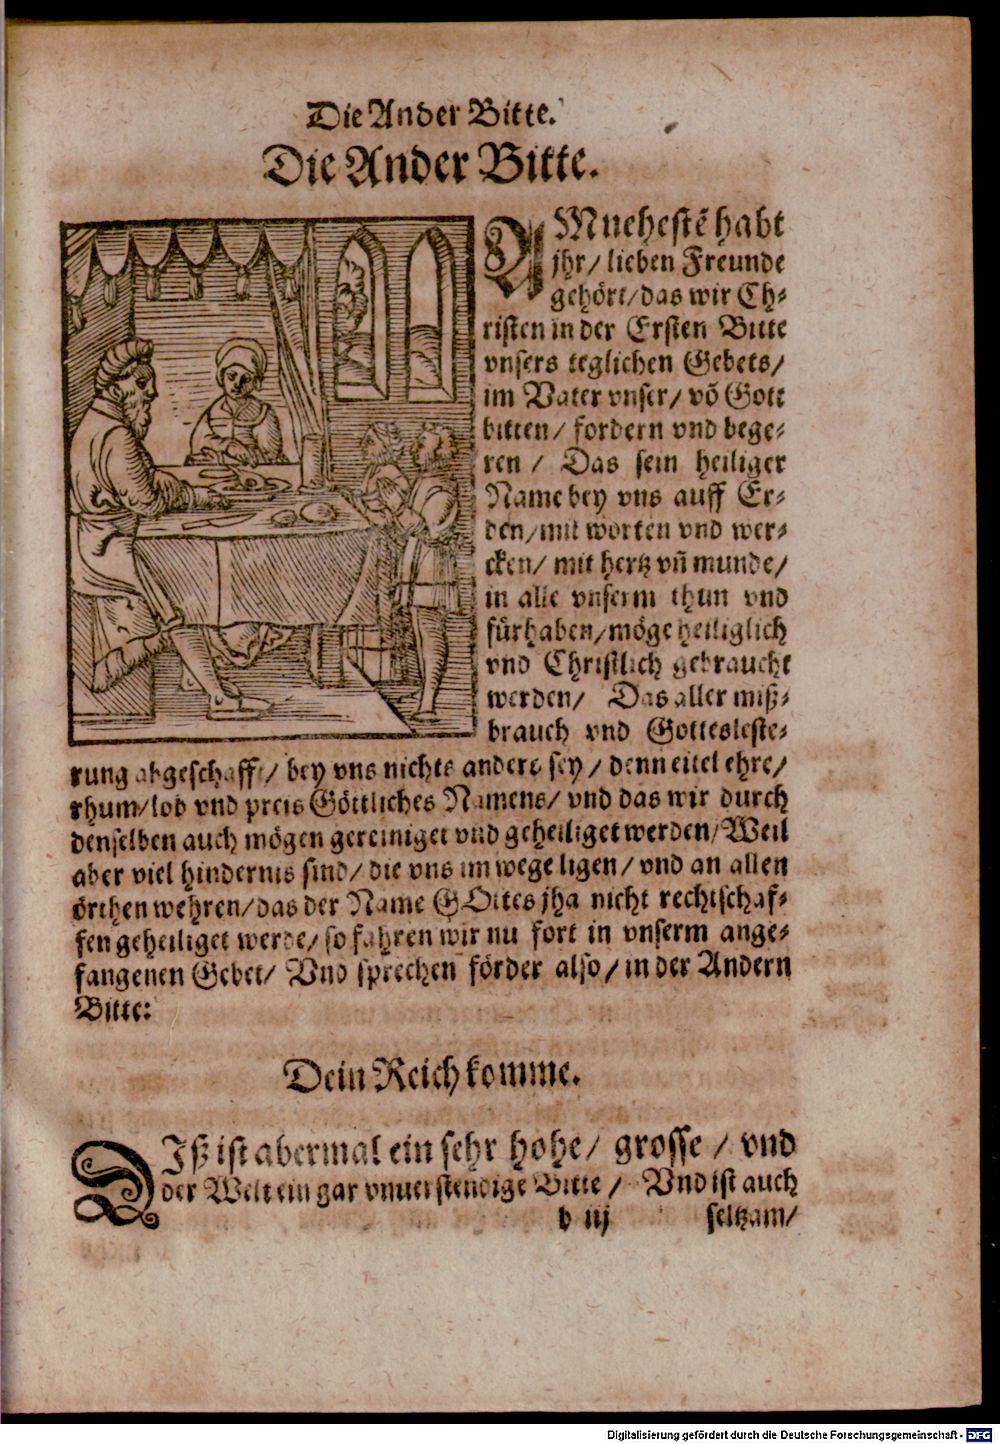 Die Ander Bitte.
Die Ander Bitte.
AMnehestē habt
jhr/ lieben Freunde
gehört/das wir Ch⸗
risten in der Ersten Bitte
vnsers teglichen Gebets/
im Vater vnser/ vō Gott
bitten/ fordern vnd bege⸗
ren / Das sein heiliger
Name bey vns auff Er⸗
den/mit worten vnd wer⸗
cken/ mit hertz vn̄ munde/
in alle vnserm thun vnd
fürhaben/möge heiliglich
vnd Christlich gebraucht
werden/ Das aller miß⸗
brauch vnd Gottesleste⸗
rung abgeschafft/ bey vns nichts anders sey/ denn eitel ehre/
rhum/lob vnd preis Göttliches Namens/ vnd das wir durch
denselben auch mögen gereiniget vnd geheiliget werden/Weil
aber viel hindernis sind/ die vns im wege ligen/ vnd an allen
örthen wehren/das der Name GOttes jha nicht rechtschaf⸗
fen geheiliget werde/ so fahren wir nu fort in vnserm ange⸗
fangenen Gebet/ Vnd sprechen förder also/ in der Andern
Bitte:
Dein Reich komme.
DIß ist abermal ein sehr hohe/ grosse / vnd
der Welt ein gar vnuerstendige Bitte / Vnd ist auch
b iij seltzam/
Digitalisierung gefördert durch die Deutsche Forschungsgemeinschaft - DFG